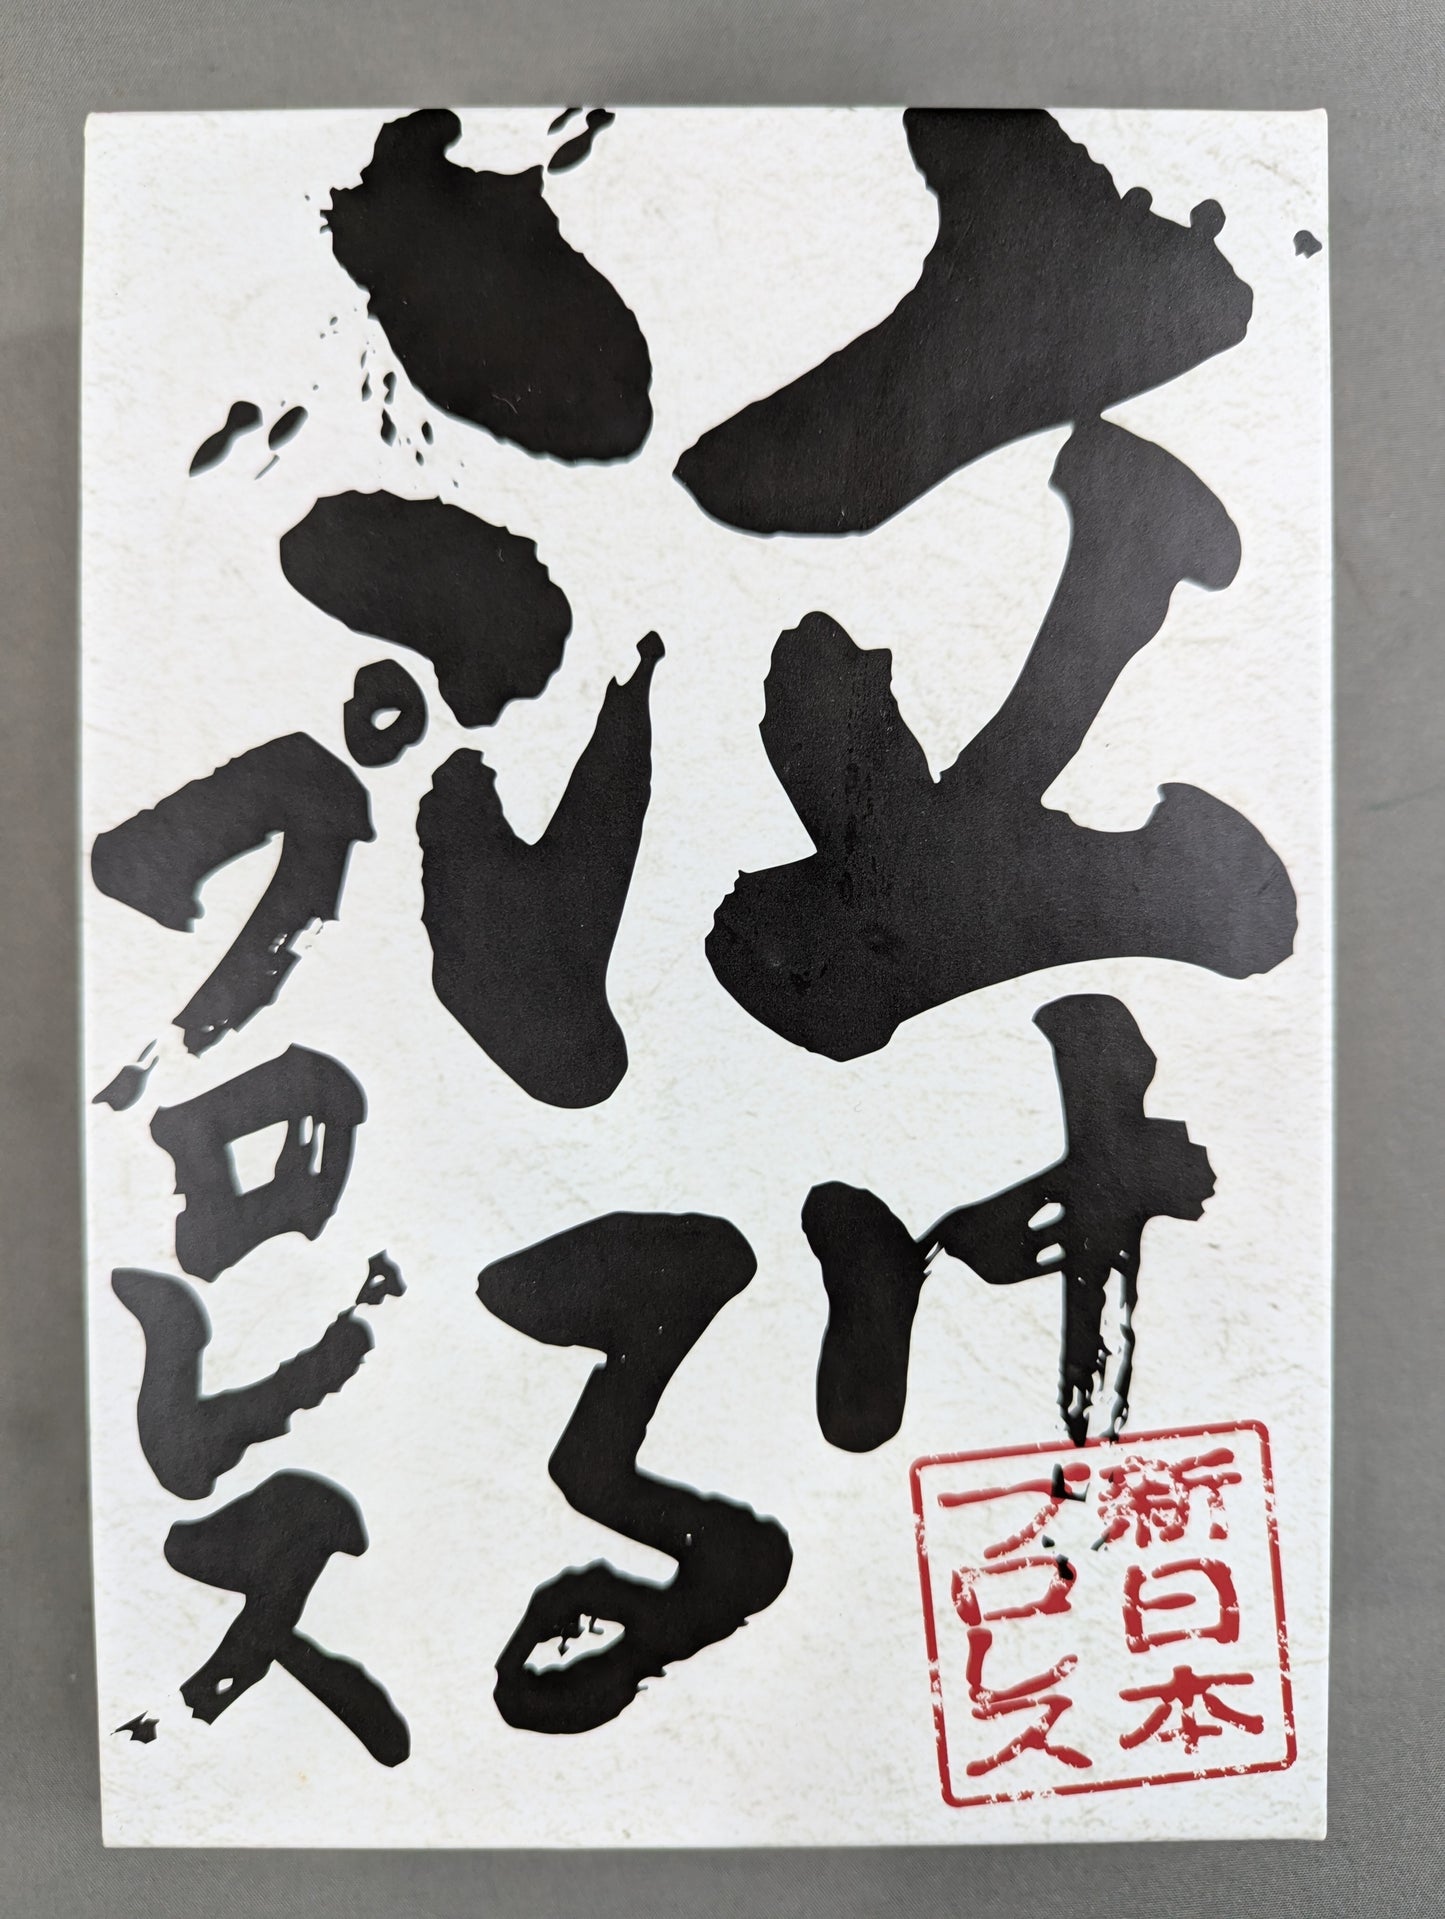 泣ける
プロレス
新日本
プロレス